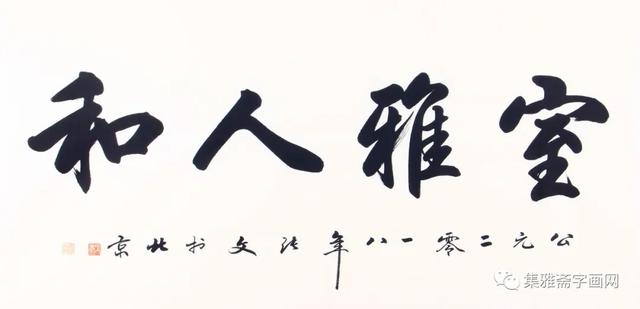 室雅人和
公元二零一八年张文於北京
集雅斋字画网